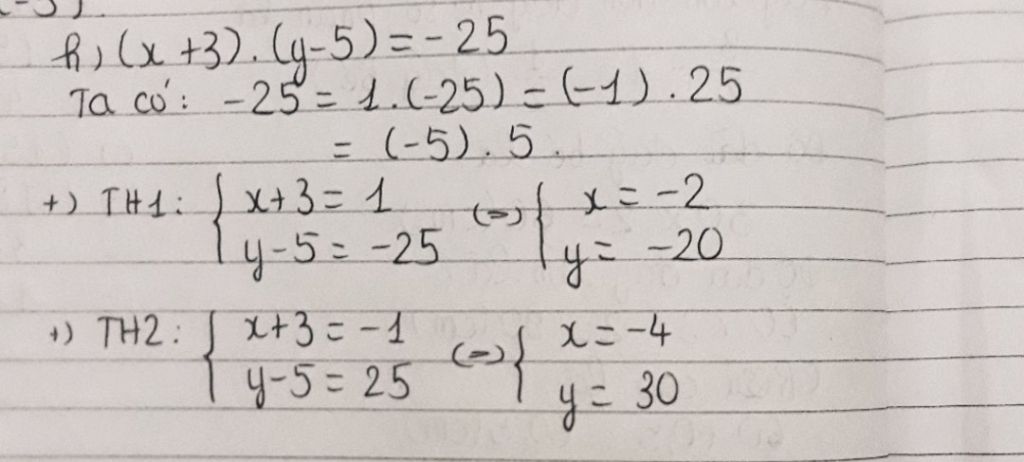 h) (x+3).(y-5) = -25
Ta có: -25 = 1.(-25) = (-1).25
= (-5).5
+) TH1: { x+3 = 1 (=) { x = -2
y-5 = -25 y = -20
+) TH2: { x+3 = -1 (=) { x = -4
y-5 = 25 y = 30